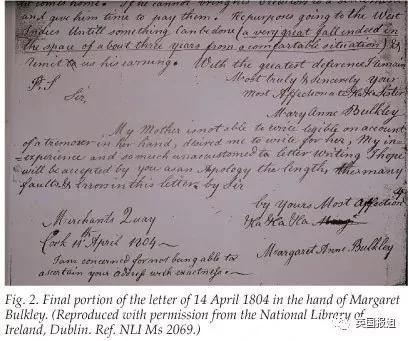 and give him time to pay them. He purposes going to the West
Indies Untill something Can be done (a very great fall indeed in
the space of about three years from a comfortable situation) &
remit to us his earning. With the greatest deference I remain
Most truly & Sincerely your
most Affectionate Ha Ha Sister
Mary Anne Bulkley
P.S
Sir,
My Mother is not able to write legible on account
of a tremor in her hand, desired me to write for her, My in-
experience and so much unaccustomed to letter Writing I hope
will be accepted by you as an Apology the length, the many
faults & Errors in this letter by Sir
by yours Most Affection
Ha Ha Ha
Margaret Anne Bulkley
Merchants Quay
Cork 14th April 1804
I am concerned for not being able to
ascertain your address with exactness.
Fig. 2. Final portion of the letter of 14 April 1804 in the hand of Margaret
Bulkley. (Reproduced with permission from the National Library of
Ireland, Dublin. Ref. NLI Ms 2069.)
英国报姐